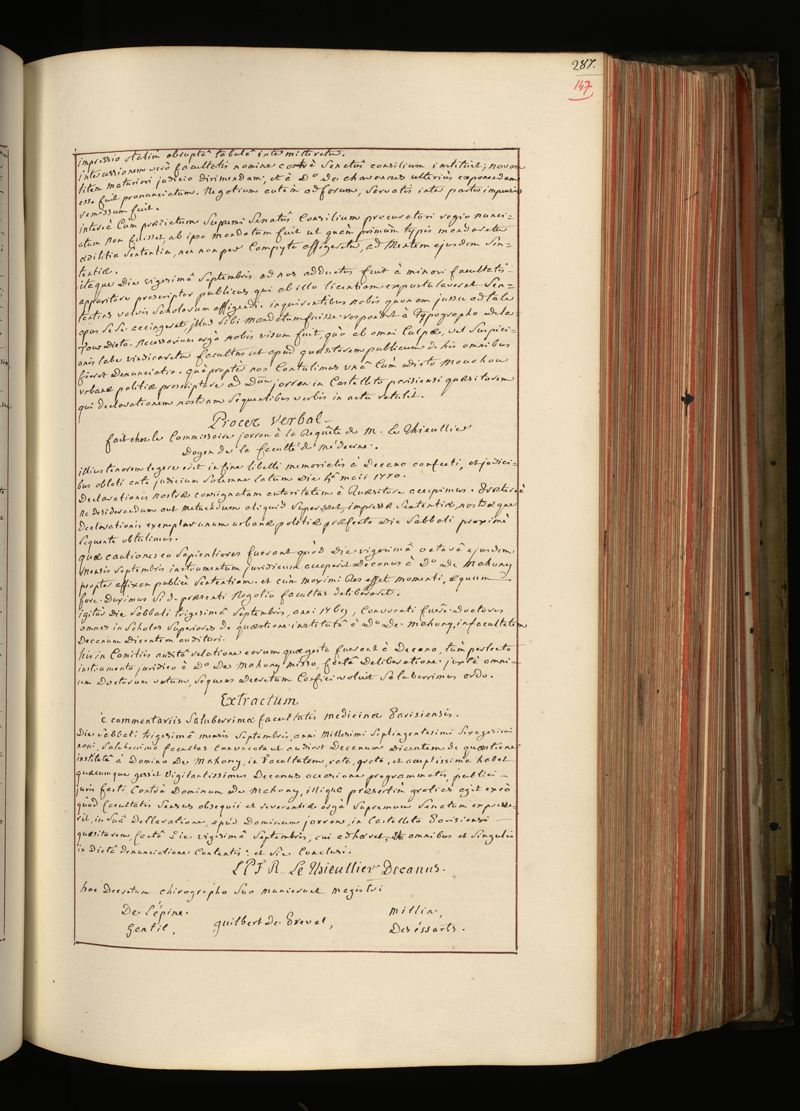 287.
147
impressio statim abruptâ tabulâ inte mitteretur.
intercessionem verò facultatis nomine contrà Senatûs consilium instituit; novam
litem maturiori judicio dirimendam, et à D.º De chavannes ulteriùs exponendam
esse fuit pronunciatum. Negotium autem ad forum, servatis inte partis impensis
remissum fuit.
intereà Cum prædictum Supremi Senatûs Consilium procuratori regio nunci=
atum non fuisset, ab ipso mandatum fuit ut quàm primùm typis mandaretur
ædilitia Sententia, nec non per Compita affigeretur, ad Mentem ejusdem Sen=
tentiæ.
itaque Die vigesimâ Septembris ad nos adductus fuit à minori facultatis
apparitore proscriptor publicus qui ab illo licentiam expostulaverat Sen=
tentias valvis Scholarum affigendi. inquirentibus nobis quonam jussu ad tale
opus Sese accingeret, illud Sibi Mandatum fuisse respondit à Typographo Dela=
Tour dicto. Necessarium ergò nobis visum fuit, quò ab omni Culpæ, vel Suspici=
onis labe vindicaretur facultas ut apud quæsitorem publicum de his omnibus
fieret Denunciatio. quà proptèr nos Contulimus unà Cum adicto Mouchou
urbanæ politiæ proscriptore ad Dum jorron in Castelleto parisiensi quæsitorem
qui declarationem nostram Sequentibus verbis in acta retulit.
Procez verbal
fait chez le Commissaire jorron à la Requête de M. Le Thieullier
Doyen de la faculté de Médecine.
illius tenorem legere erit in fine libelli memorialis à Decano confecti, et judici=
bus oblati antè judicium Solemne latum die 4ª. maii 1770.
Declarationis nostræ consignatam autoritatem à Quæsitore accepimus. Prætereà
ne desiderandum aut metuendum aliquid Superesset, impressæ Sententiæ, nostræque
Declarationis exemplar unum urbanæ politiæ præfecto die Sabbati proximè
Sequente obtulimus.
quæ cautiones eo Sapientiores fuerant quòd Die vigesimâ octavâ ejusdem
Mensis Septembris instrumentum juridicum acceperit Decanus à D.º De Mahony
propter affixam publicè Sententiam. et cùm maximi Res esset momenti, æquum
fore Duximus Si de præsenti Negotio facultas deliberaret.
igitur die Sabbati trigesimâ Septembris, anni 1769, Convocati fuere Doctores
omnes in Scholas Superiores de quæstione institutâ à D.º De Mahony, in facultatem
Decanum Dicentem audituri.
his in Comitiis auditâ relatione eorum quæ gesta fuerant à Decano, tùm perlecto
instrumento juridico à D.º De Mahony misso, factâ Deliberatione juxtà omni=
um Doctorum votum, Sequens decretum Confici voluit Saluberrimus ordo.
Extractum
è commentariis Saluberrimæ facultatis medicinæ Parisiensis.
Die Sabbati trigesimâ mensis Septembris, anni Millesimi Septingentesimi Sexagesimi
noni, Saluberrima facultas Convocata ut audiret Decanum Dicentem de quæstione
institutâ à Domino De Mahony, in Facultatem, rata, grata, et amplissima habet
quæcumque gessit Vigilantissimus Decanus occasione programmatis, publici
juris facti, Contrà Dominum De Mahony, illique præsertim gratias agit ex eo
quòd facultatis Sensus obsequii et reverentiæ ergà Supremum Senatum expresse=
rit, in Suâ Declaratione, apud Dominum jorron, in Castelleto Parisiensi
quæsitorem factâ die vigesimâ Septembris, cui adhæret, Et omnibus et singulis
in dictâ denunciatione Contentis: et Sic Conclusi.
L P F R Le Thieullier Decanus.
hoc Decretum chirographo Suo munierunt Magistri
De Lépine.
Millin,
Gentil,
Guilbert De Preval,
Deséssarts.